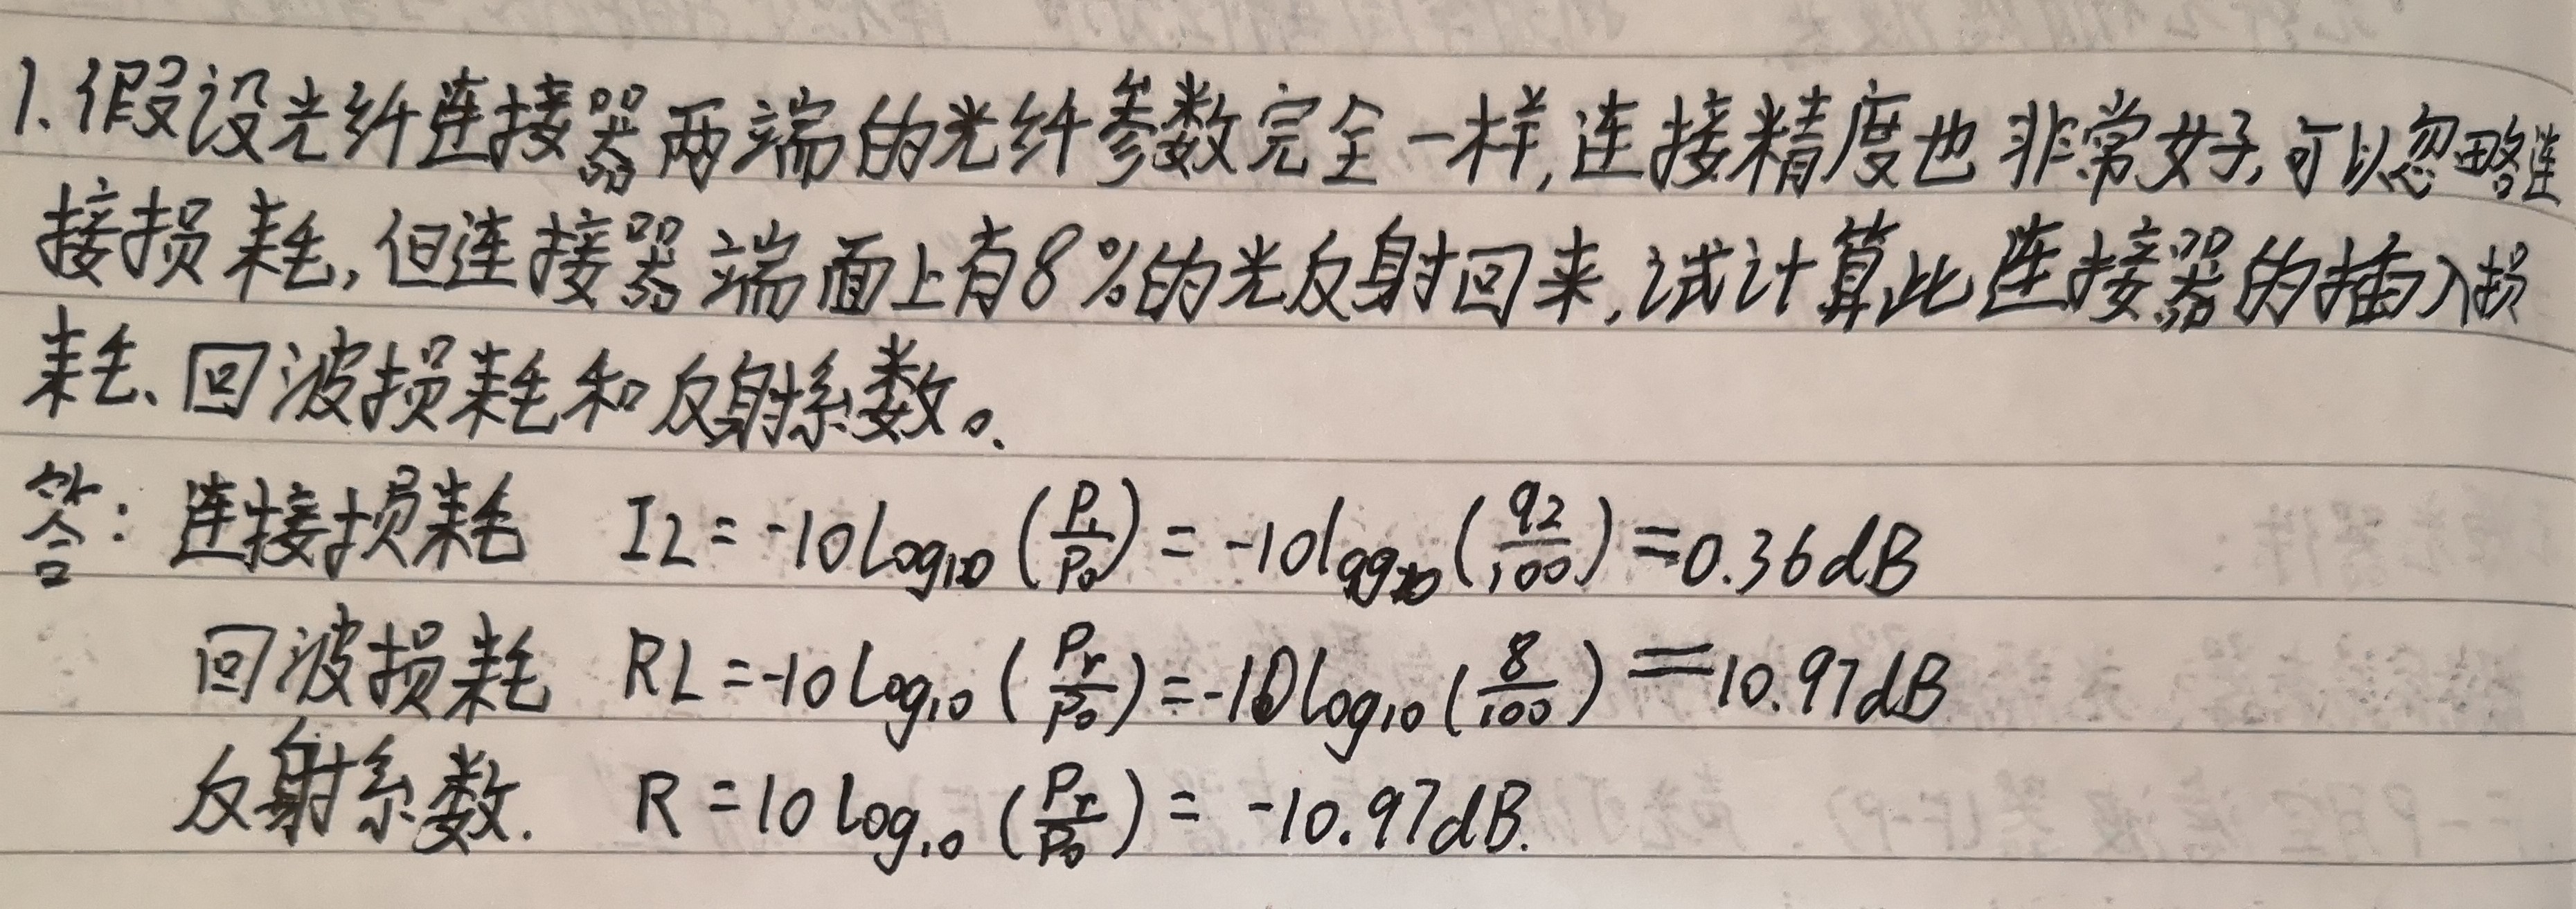 1.假设光纤连接器两端的光纤参数完全一样,连接精度也非常好,可以忽略连
接损耗,但连接器端面上有8%的光反射回来,试计算此连接器的插入损
耗、回波损耗和反射系数。
答:连接损耗 IL=-10Log₁₀(P₁/P₀)=-10log₁₀(92/100)=0.36dB
回波损耗 RL=-10Log₁₀(Pr/P₀)=-10Log₁₀(8/100)=10.97dB
反射系数. R=10Log₁₀(Pr/P₀)=-10.97dB.